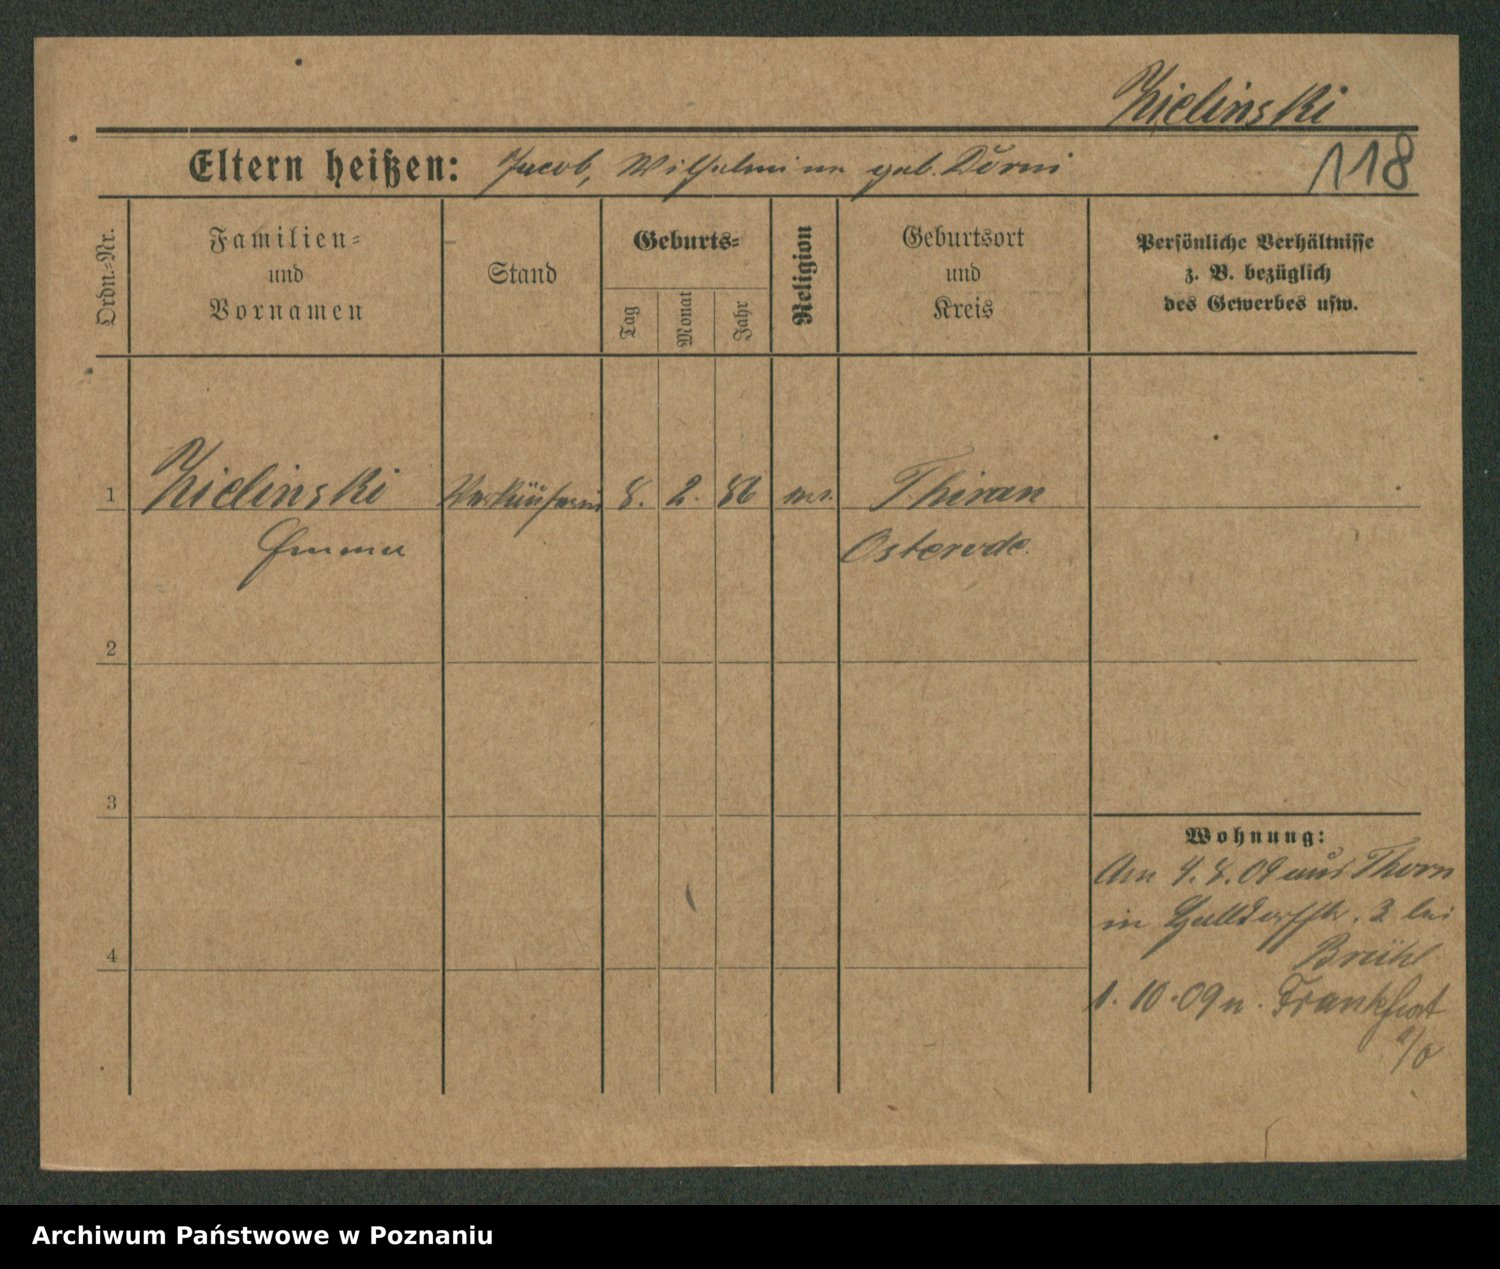 Zielinski
Eltern heißen: Jacob, Wilhelmine geb. Dorni
118
Ordn.-Nr.
Familien-
und
Vornamen
Stand
Geburts-
Tag
Monat
Jahr
Religion
Geburtsort
und
Kreis
Persönliche Verhältnisse
z. B. bezüglich
des Gewerbes usw.
1 Zielinski Verkäuferin 8. 2. 86 ev. Thiran
Emma Osterode.
2
3
Wohnung:
Am 4. 8. 09 aus Thorn
in 3 bei
Brühl
4
1. 10. 09 n. Frankfurt
a/o
Archiwum Państwowe w Poznaniu